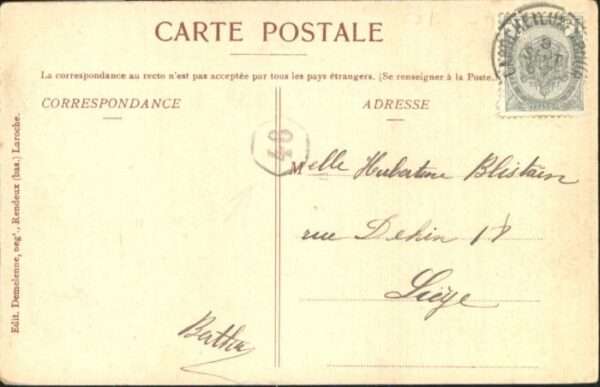 CARTE POSTALE
La correspondance au recto n'est pas acceptée par tous les pays étrangers. (Se renseigner à la Poste.
CORRESPONDANCE
ADRESSE
48
Melle Hubertine Blistain
rue Dehin 18
Liège
Bertha
Edit. Demelenne, neg^t., Rendeux (bas.) Laroche.